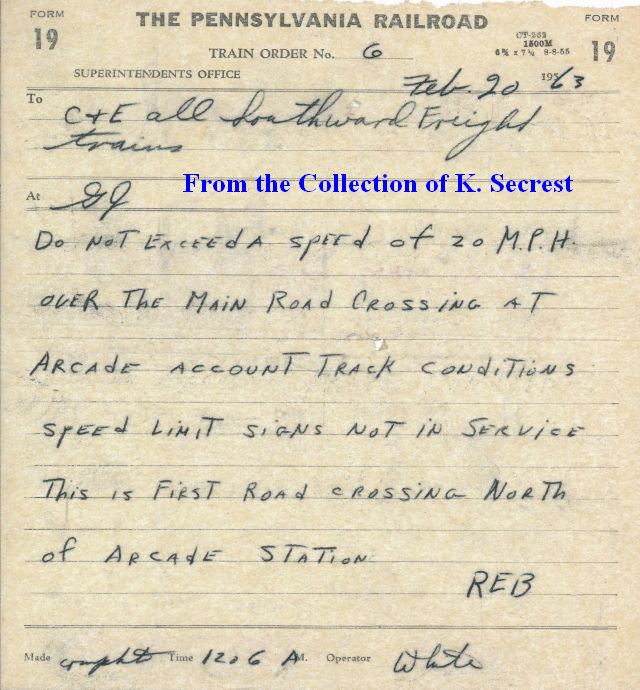 FORM 19
THE PENNSYLVANIA RAILROAD
FORM 19
TRAIN ORDER No. 6
CT-262
1500M
6¾ x 7¼ 8-8-55
SUPERINTENDENTS OFFICE
Feb. 20 1963
To C+E all Southward Freight
trains
From the Collection of K. Secrest
At GJ
Do NOT EXCEED A SPEED OF 20 M.P.H.
OVER THE MAIN ROAD CROSSING AT
ARCADE ACCOUNT TRACK CONDITIONS
SPEED LIMIT SIGNS NOT IN SERVICE
This is FIRST ROAD CROSSING NORTH
of ARCADE STATION
REB
Made Time 1206 A M. Operator White